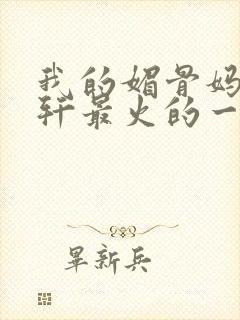 我的媚骨妈
轩最火的一
畢新兵